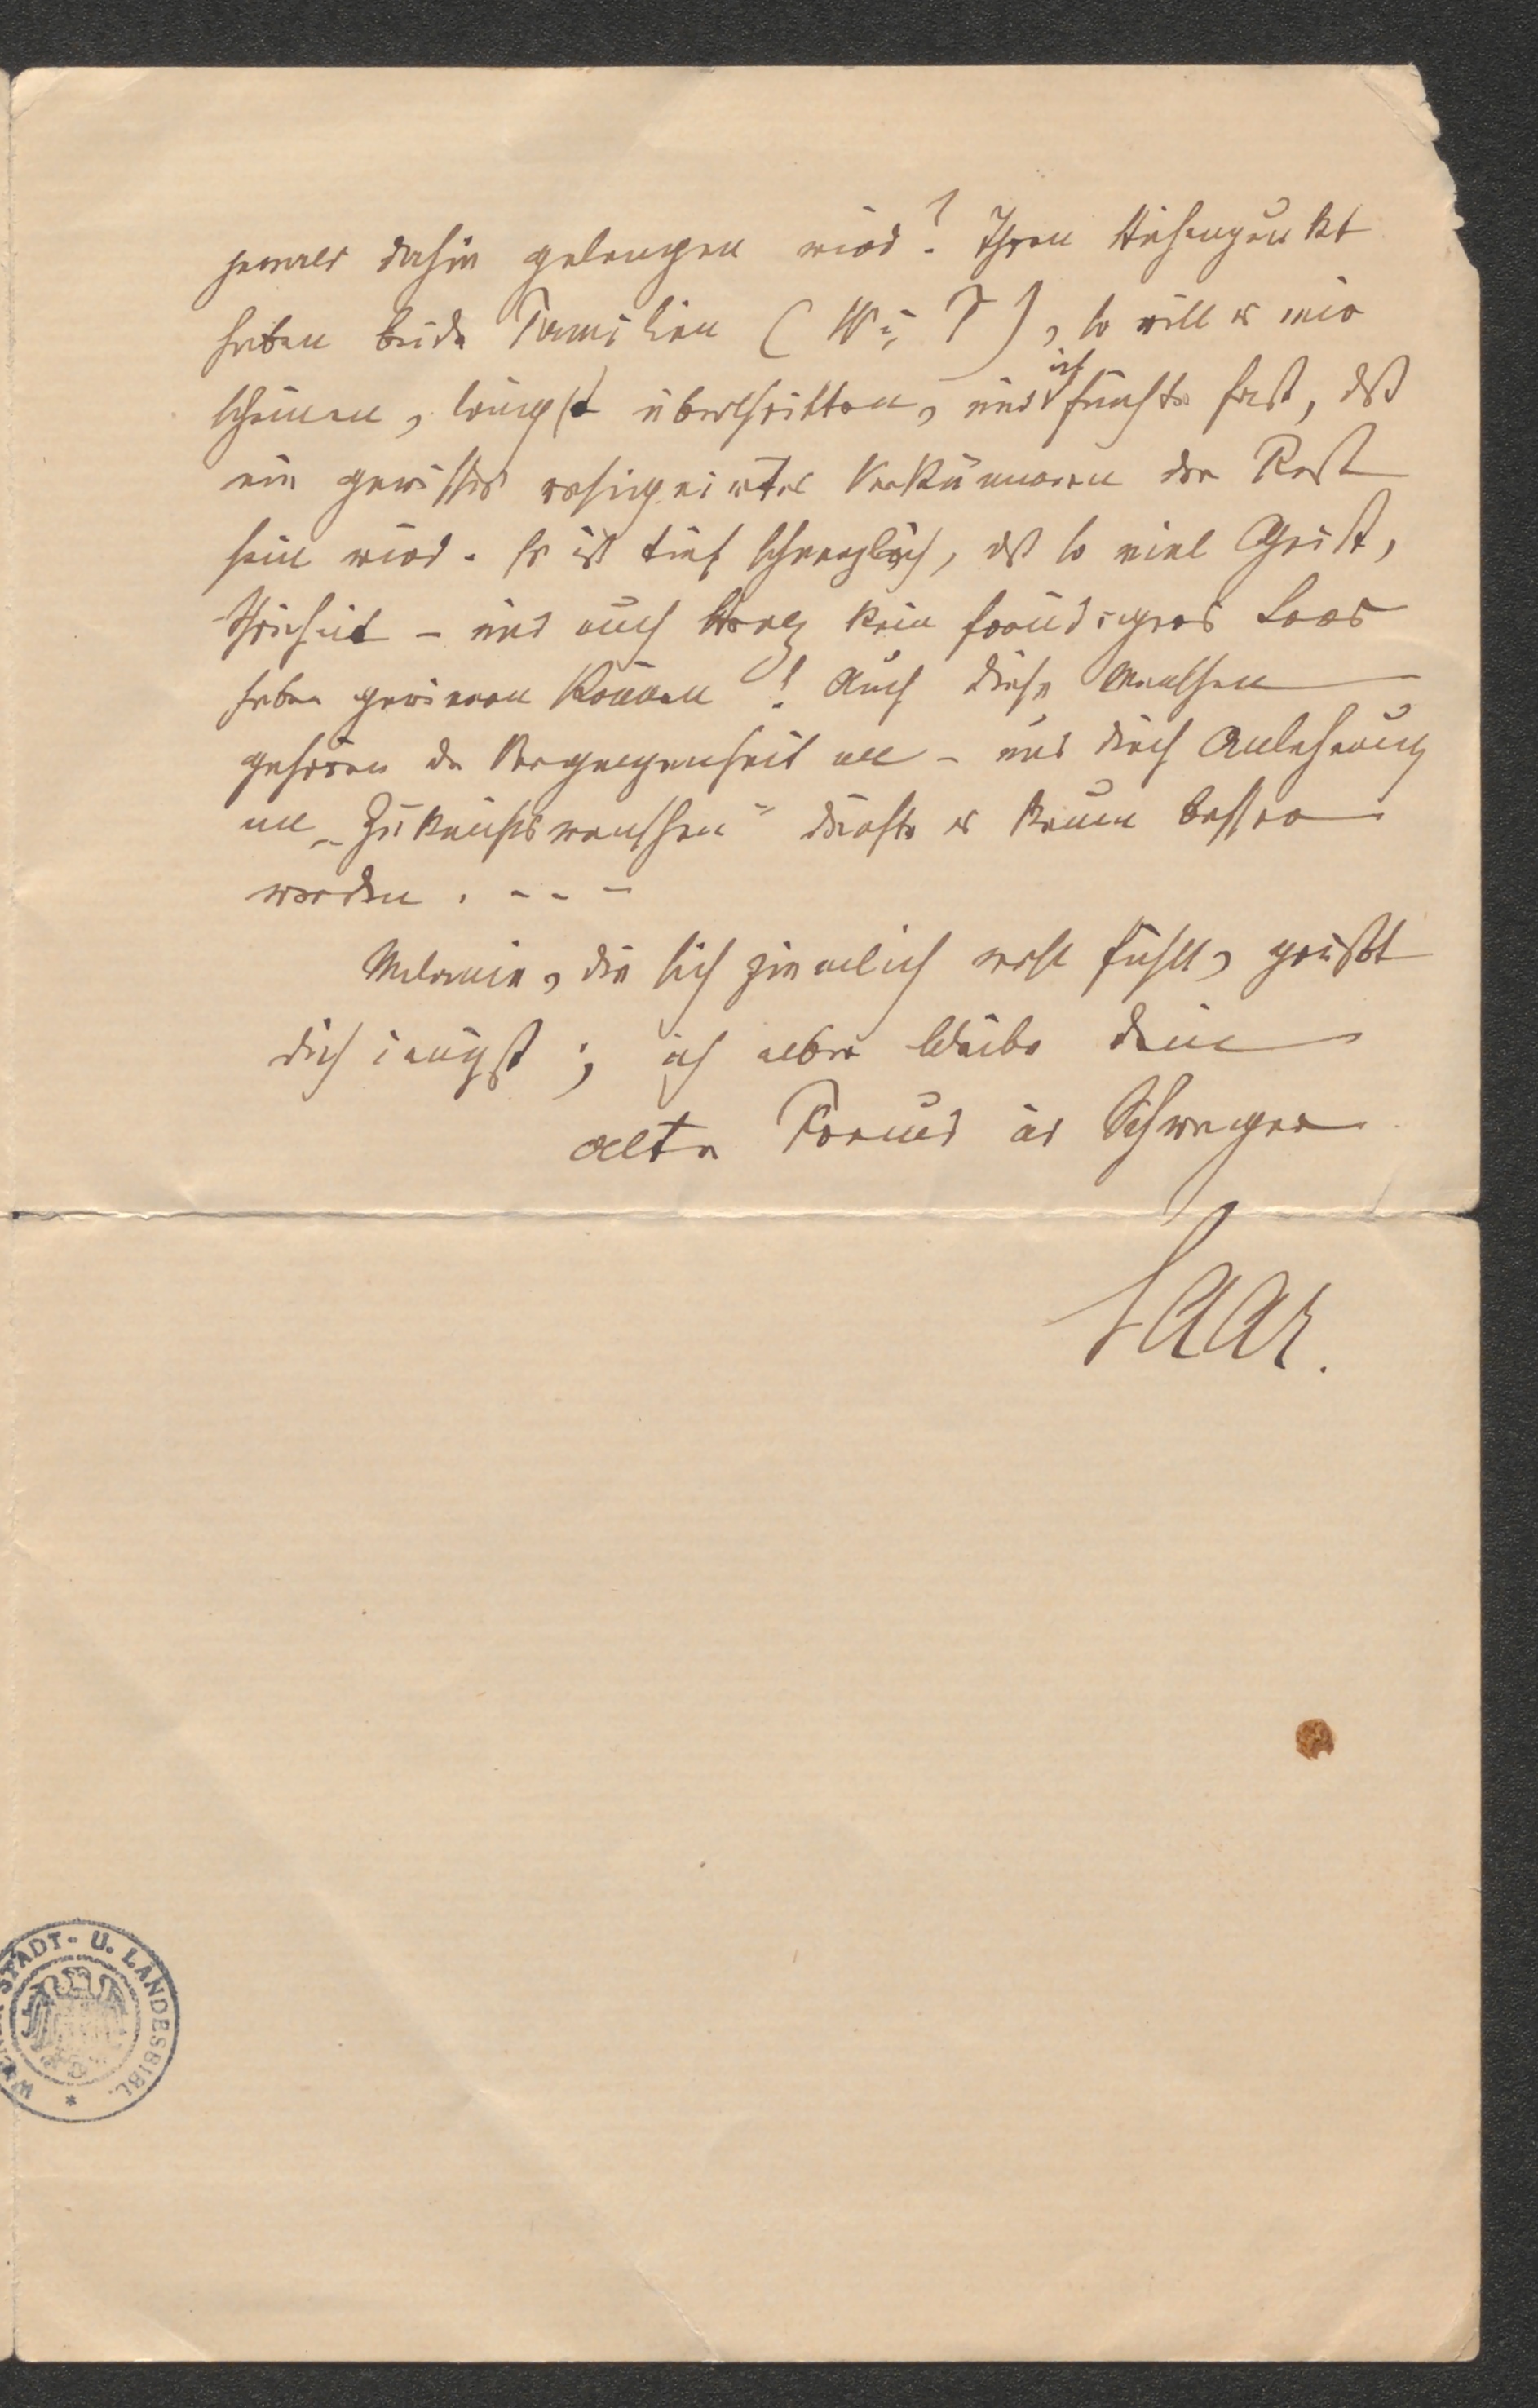 jemals dahin gelangen wird? Ihren Höhenpunkt
haben beide Familien (W u. T), so will es mir
scheinen, längst überschritten, und ich fürchte fast, dß
ein gewisses resignirtes Verkümmern der Rest
sein wird. Es ist tief schmerzlich, dß so viel Geist,
Schönheit – und auch Herz kein freudigeres Loos
haben gewinnen können! Auch diese Menschen
gehören der Vergangenheit an – und durch Anlehnung
an „Zukunftsmenschen" dürfte es kaum besser
werden. - - -
Melanie, die sich ziemlich wohl fühlt, grüßt
dich innigst; ich aber bleibe dein
alter Freund u Schwager
Saar.
STADT- U. LANDESBIBL.